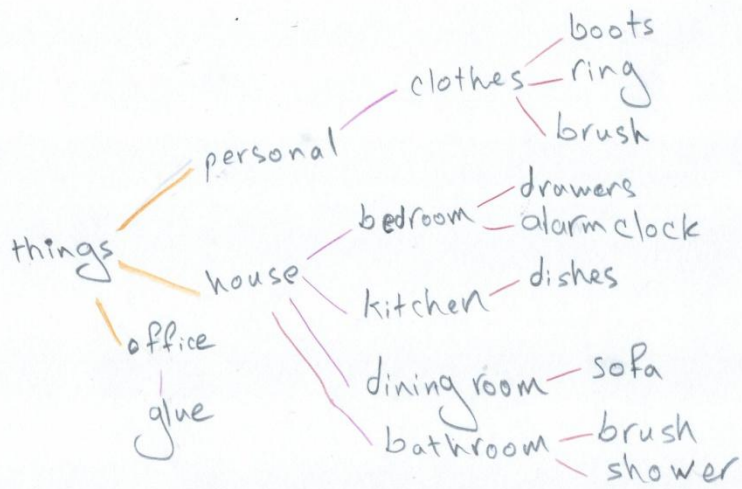 things
personal
clothes
boots
ring
brush
house
bedroom
drawers
alarm clock
kitchen
dishes
dining room
sofa
bathroom
brush
shower
office
glue